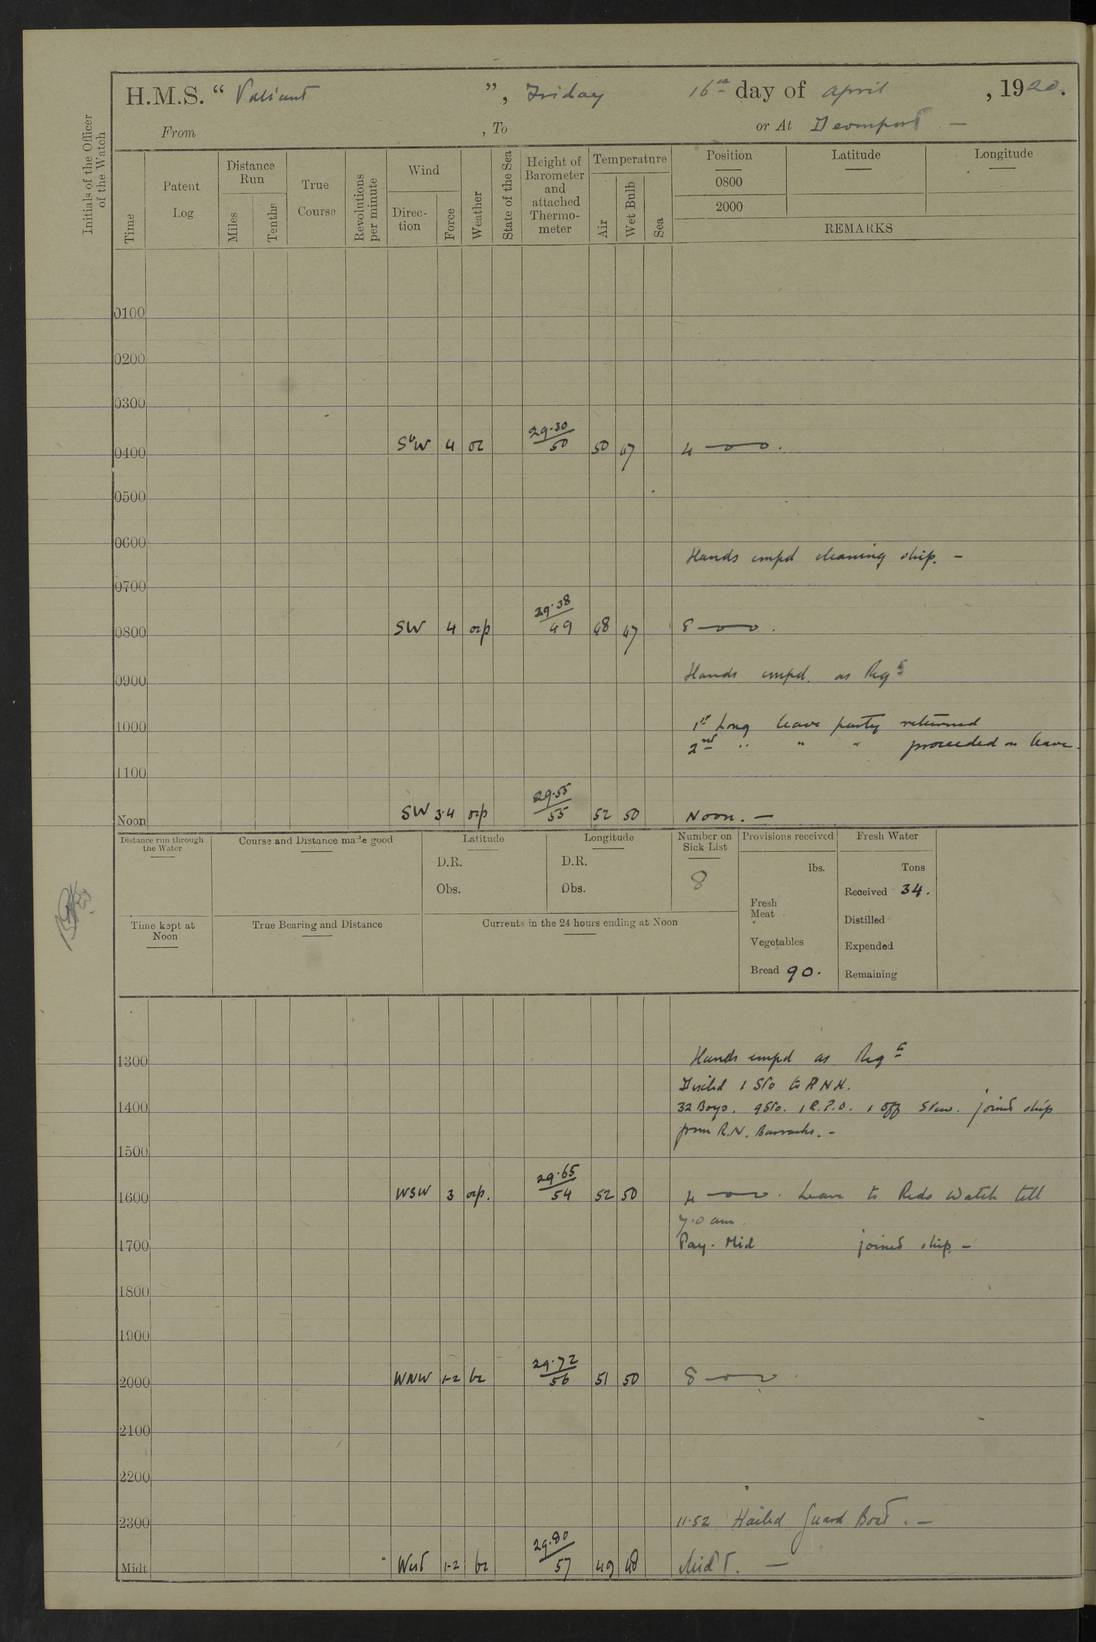 H.M.S. “ Valiant ”, Friday 16th day of April , 1920.
From , To or At Devonport —
Initials of the Officer of the Watch
Time
Patent Log
Distance Run
Miles
Tenths
True Course
Revolutions per minute
Wind
Direction
Force
Weather
State of the Sea
Height of Barometer and attached Thermometer
Temperature
Air
Wet Bulb
Sea
Position
0800
2000
Latitude
Longitude
REMARKS
0100
0200
0300
0400 SbW 4 oc 29.30/50 50 47 4
0500
0600
Hands empd cleaning ship. —
0700
0800 SW 4 ocp 29.38/49 48 47 8
0900 Hands empd. as Reqd
1000 1st Long leave party returned
2nd " " " proceeded on leave.
1100
Noon SW 3.4 ocp 29.55/55 52 50 Noon. —
Distance run through the Water
Course and Distance made good
Latitude
D.R.
Obs.
Longitude
D.R.
Obs.
Number on Sick List
8
Provisions received
lbs.
Fresh Meat
Vegetables
Bread 90.
Fresh Water
Tons
Received 34.
Distilled
Expended
Remaining
Time kept at Noon
True Bearing and Distance
Currents in the 24 hours ending at Noon
1300 Hands empd as Reqd
Dischd 1 Sto to R N H.
1400 32 Boys. 9 Sto. 1 R.P.O. 1 Off Stew. joined ship
from R.N. Barracks. —
1500
1600 WSW 3 ocp. 29.65/54 52 50 4 Leave to Reds Watch till
7.0 am.
1700 Pay. Mid joined ship —
1800
1900
2000 WNW 1-2 bc 29.72/56 51 50 8
2100
2200
2300 11.52 Hailed Guard Boat. —
Midt West 1-2 bc 29.80/57 49 48 Midt. —